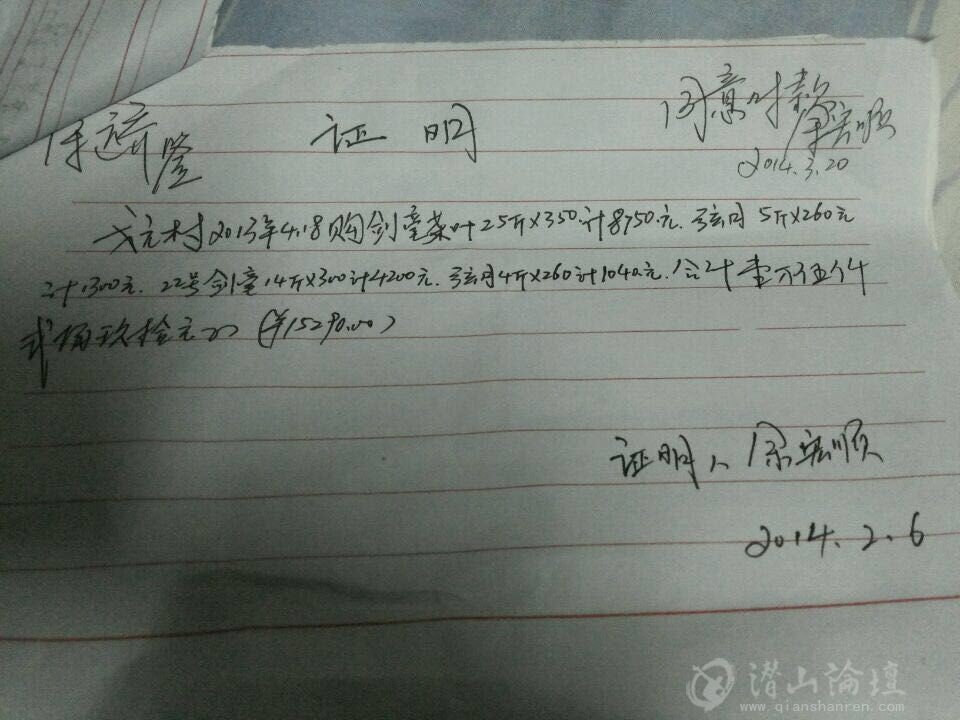 证明
同意付款
2014.3.20
我村2013年4.18购剑毫茶叶25斤×350计8750元.弦月5斤×260元
计1300元.22号剑毫14斤×300计4200元.弦月4斤×260计1040元.合计壹万伍仟
贰佰玖拾元正(¥15290.00)
证明人余宏顺
2014.2.6
潜山論壇
www.qianshanren.com